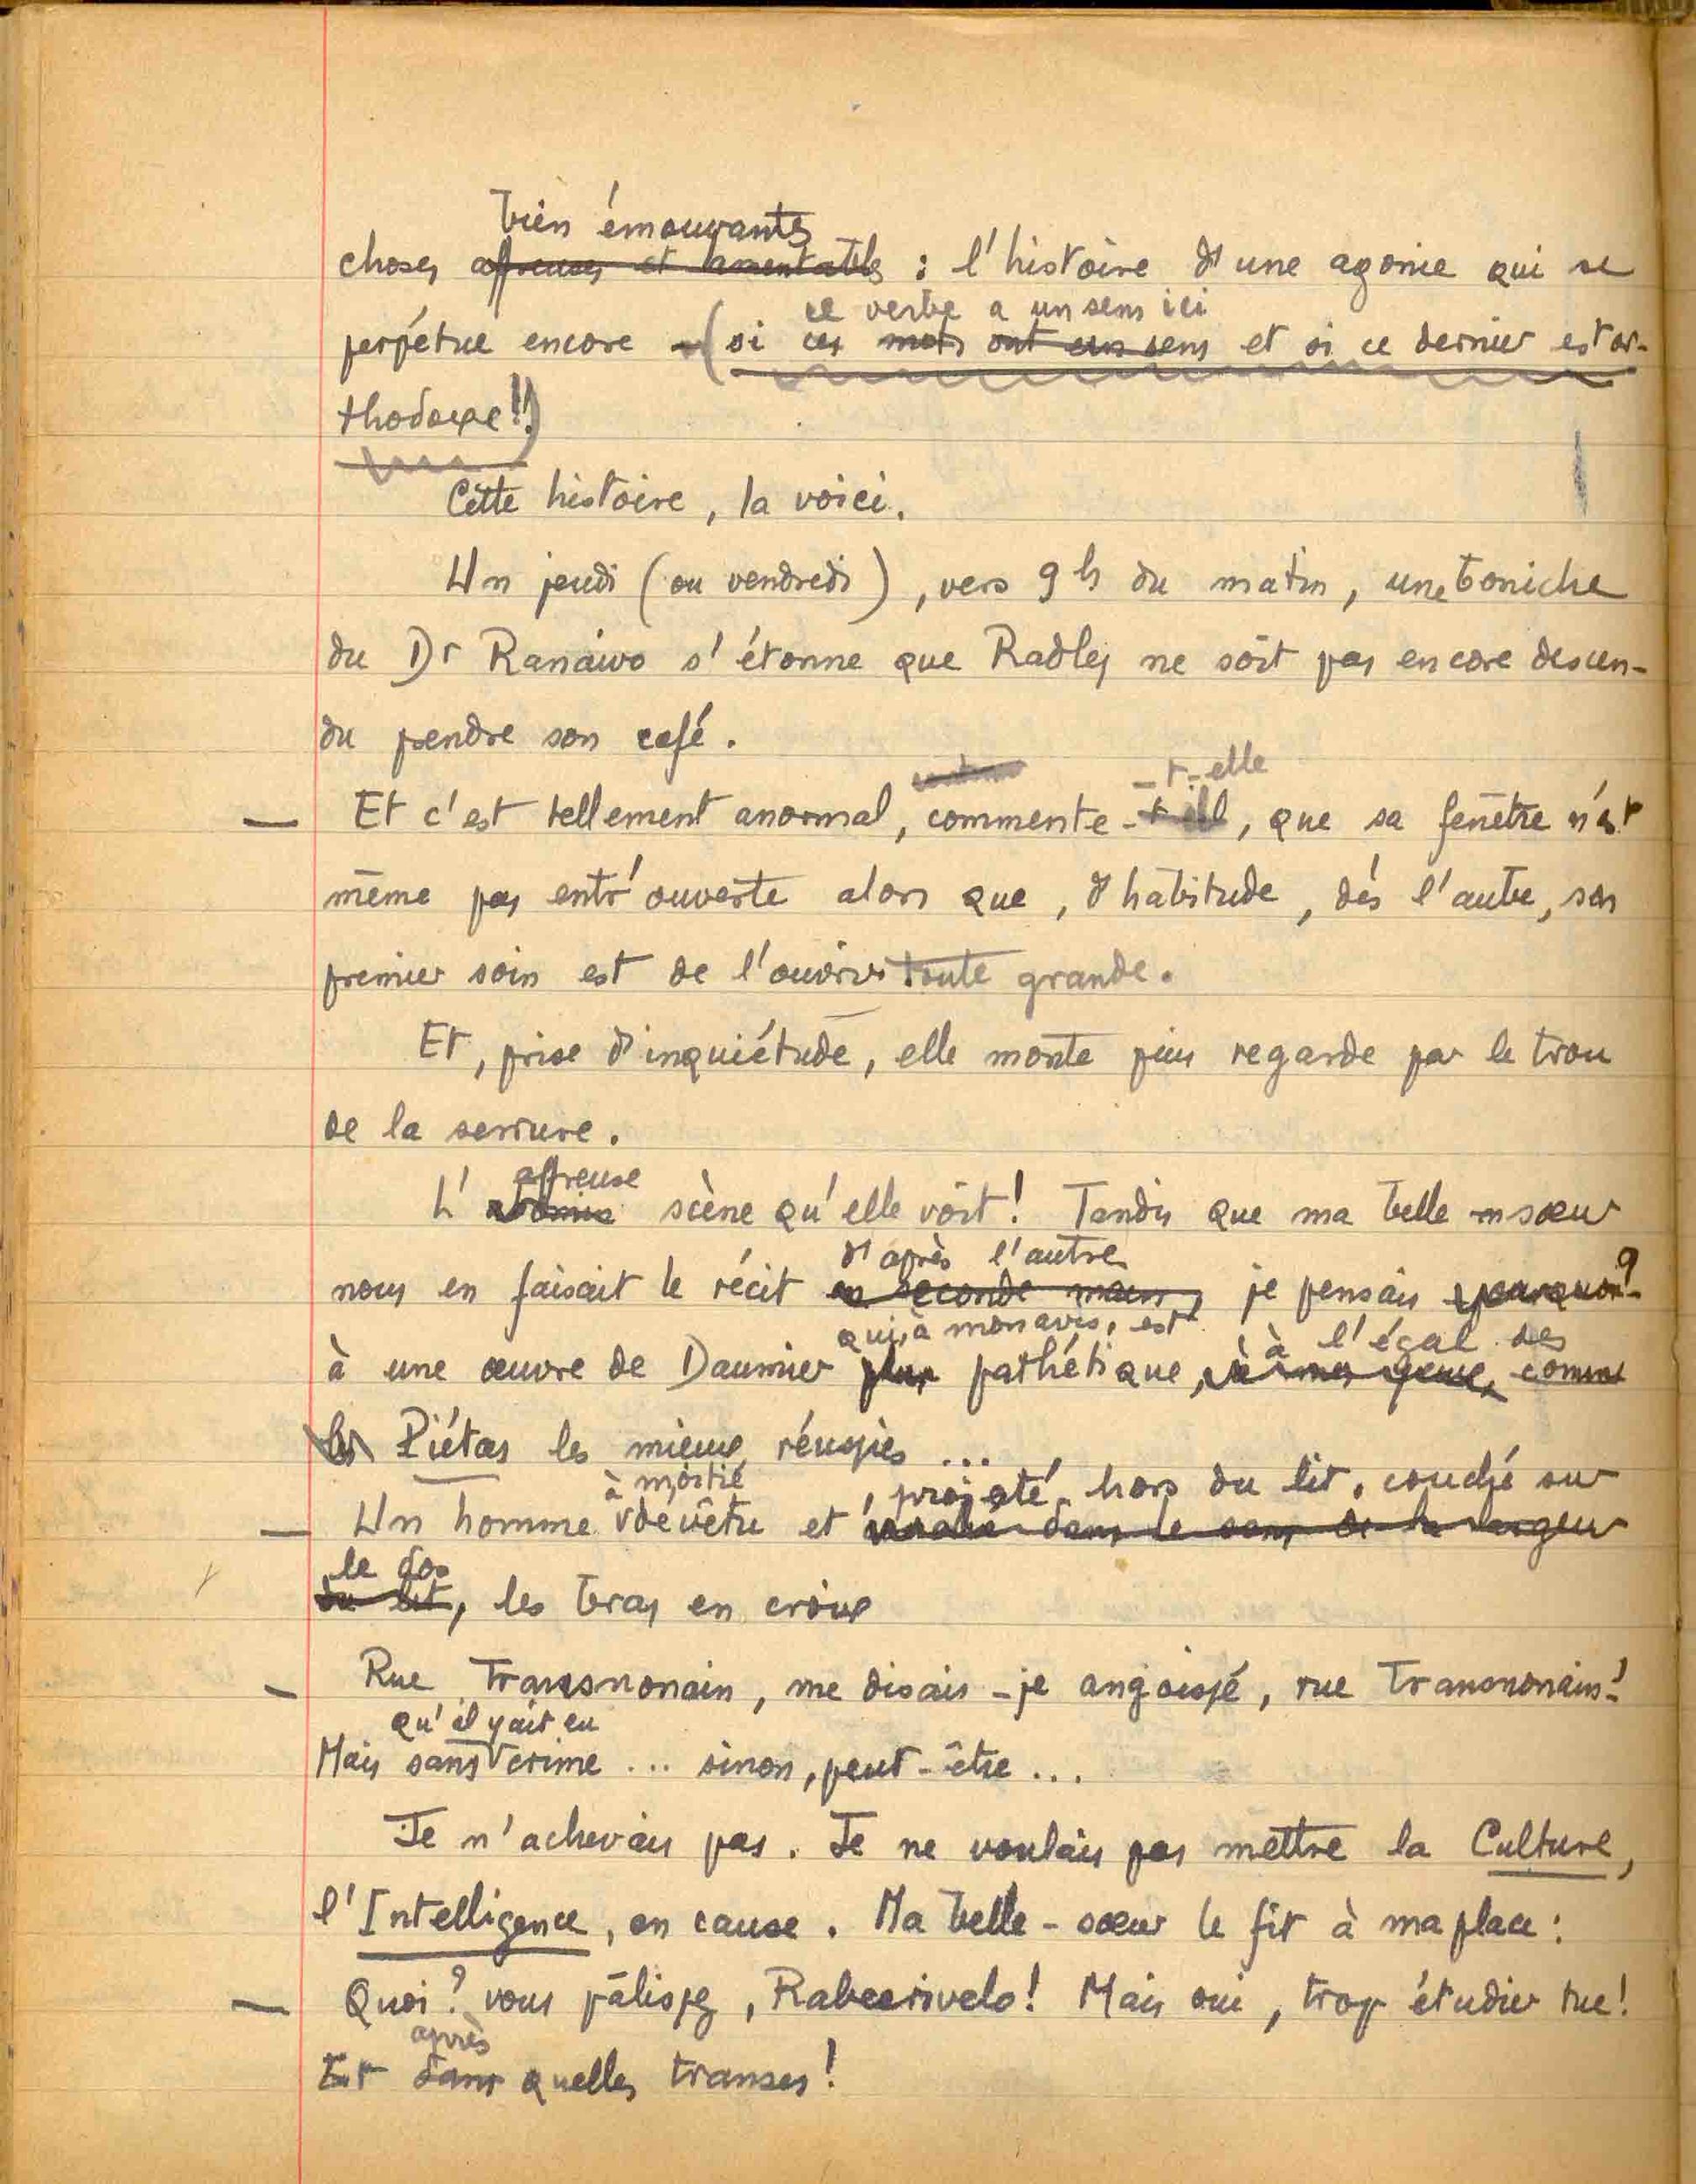 bien émouvantes
choses affreuses et lamentables : l'histoire d'une agonie qui se
ce verbe a un sens ici
perpétue encore – (si ces mots ont un sens et si ce dernier est or-
thodoxe !!)
Cette histoire, la voici.
Un jeudi (ou vendredi), vers 9 h du matin, une boniche
du Dr Ranaivo s'étonne que Radley ne soit pas encore descen-
du prendre son café.
-t-elle
— Et c'est tellement anormal, commente-t-il, que sa fenêtre n'est
même pas entr'ouverte alors que, d'habitude, dès l'aube, son
premier soin est de l'ouvrir toute grande.
Et, prise d'inquiétude, elle monte puis regarde par le trou
de la serrure.
affreuse
L' scène qu'elle voit ! Tandis que ma belle-soeur
d'après l'autre
nous en faisait le récit en seconde main, je pensais pourquoi ?
qui, à mon avis, est à l'égal des
à une œuvre de Daumier plus pathétique, à mes yeux, comme
les Piétas les mieux réussies ...
à moitié , projeté hors du lit, couché sur
— Un homme dévêtu et dans le sens de la largeur
le dos
du lit, les bras en croix
— Rue Transnonain, me disais-je angoissé, rue Transnonain !
qu'il y ait eu
Mais sans crime ... sinon, peut-être ...
Je n'achevais pas. Je ne voulais pas mettre la Culture,
l'Intelligence, en cause. Ma belle-sœur le fit à ma place :
— Quoi ? vous pâlissez, Rabearivelo ! Mais oui, trop étudier tue !
après
Et dans quelles transes !